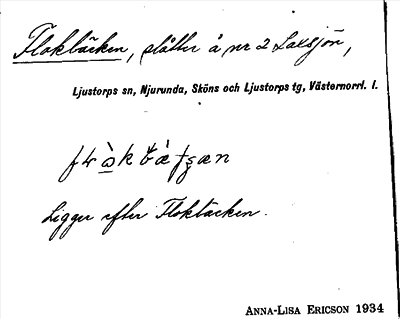 Floktäcken, slåtter å nr 2 Laxsjön,
Ljustorps sn, Njurunda, Sköns och Ljustorps tg, Västernorrl. l.
Ligger efter Floktäcken.
ANNA-LISA ERICSON 1934